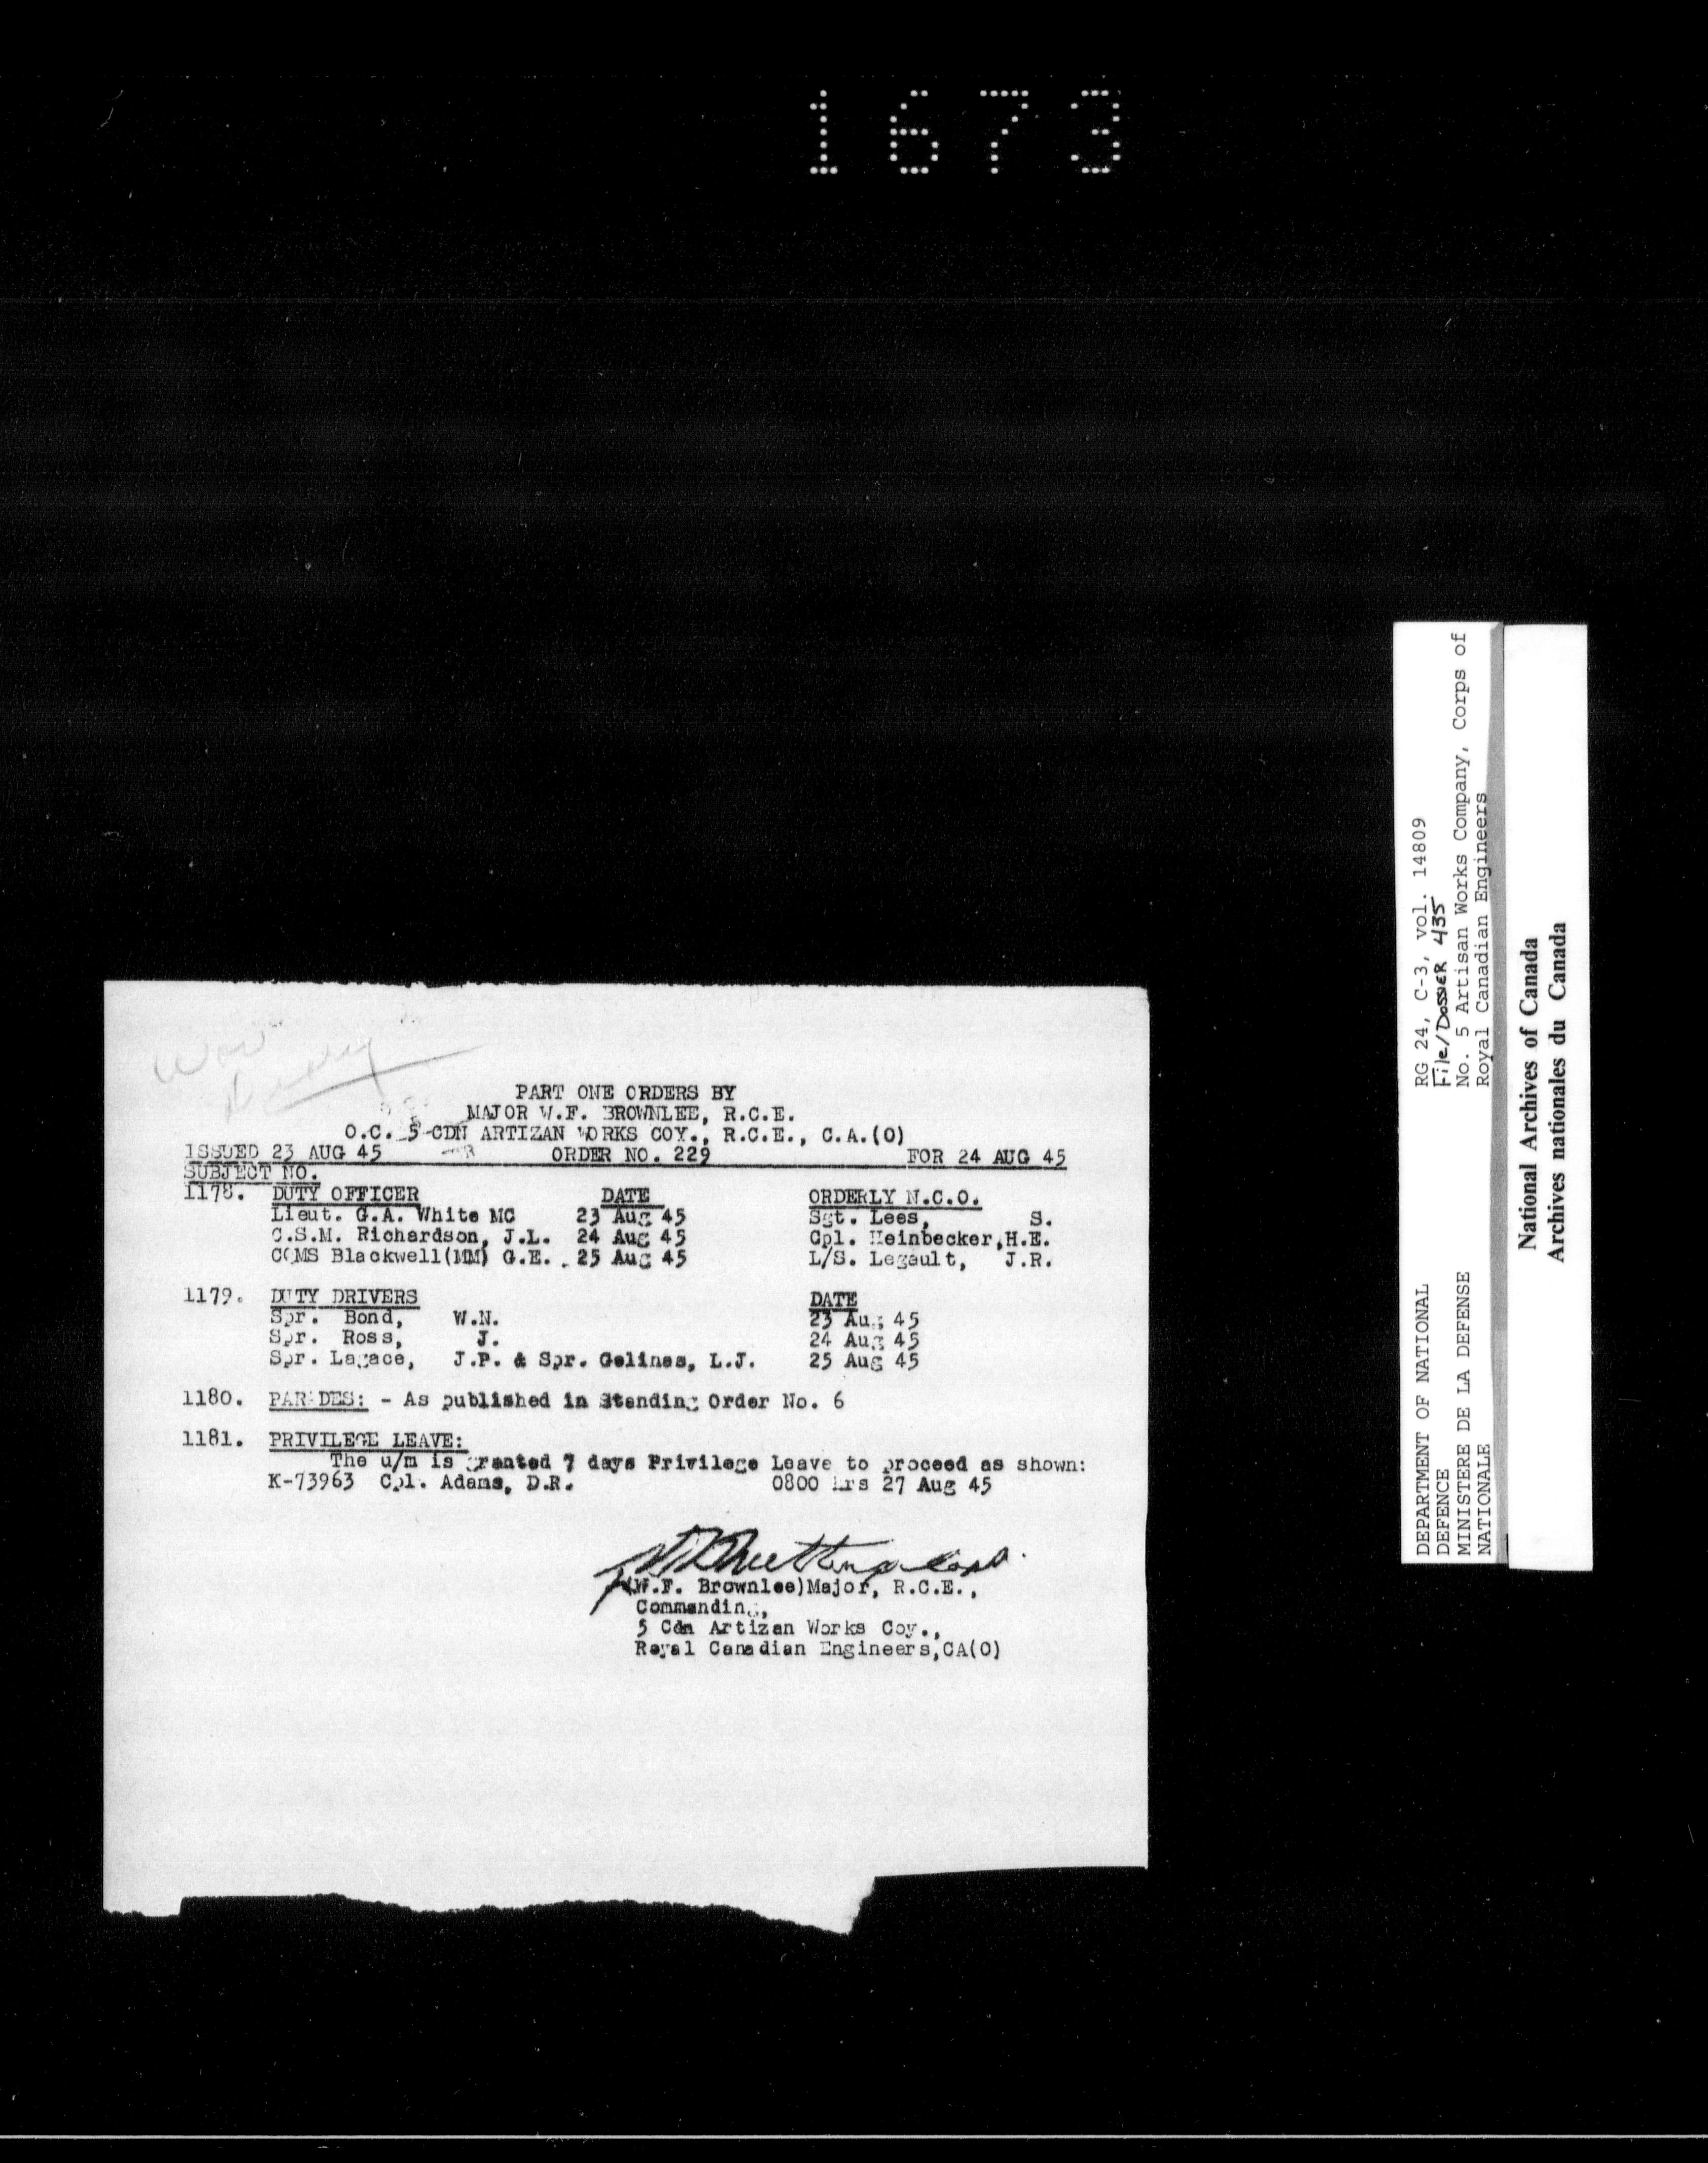 1673
War
Diary
PART ONE ORDERS BY
MAJOR W.F. BROWNLEE, R.C.E.
O.C. 5 CDN ARTIZAN WORKS COY., R.C.E., C.A.(O)
ISSUED 23 AUG 45 ORDER NO. 229 FOR 24 AUG 45
SUBJECT NO.
1178. DUTY OFFICER DATE ORDERLY N.C.O.
Lieut. G.A. White MC 23 Aug 45 Sgt. Lees, S.
C.S.M. Richardson, J.L. 24 Aug 45 Cpl. Heinbecker,H.E.
CQMS Blackwell(MM) G.E. 25 Aug 45 L/S. Legault, J.R.
1179. DUTY DRIVERS DATE
Spr. Bond, W.N. 23 Aug 45
Spr. Ross, J. 24 Aug 45
Spr. Lagace, J.P. & Spr. Gelinas, L.J. 25 Aug 45
1180. PARADES: - As published in Standing Order No. 6
1181. PRIVILEGE LEAVE:
The u/m is granted 7 days Privilege Leave to proceed as shown:
K-73963 Cpl. Adams, D.R. 0800 hrs 27 Aug 45
(W.F. Brownlee)Major, R.C.E.,
Commanding,
5 Cdn Artizan Works Coy.,
Royal Canadian Engineers,CA(O)
DEPARTMENT OF NATIONAL RG 24, C-3, vol. 14809
DEFENCE File/DOSSIER 435
MINISTERE DE LA DEFENSE No. 5 Artisan Works Company, Corps of
NATIONALE Royal Canadian Engineers
National Archives of Canada
Archives nationales du Canada